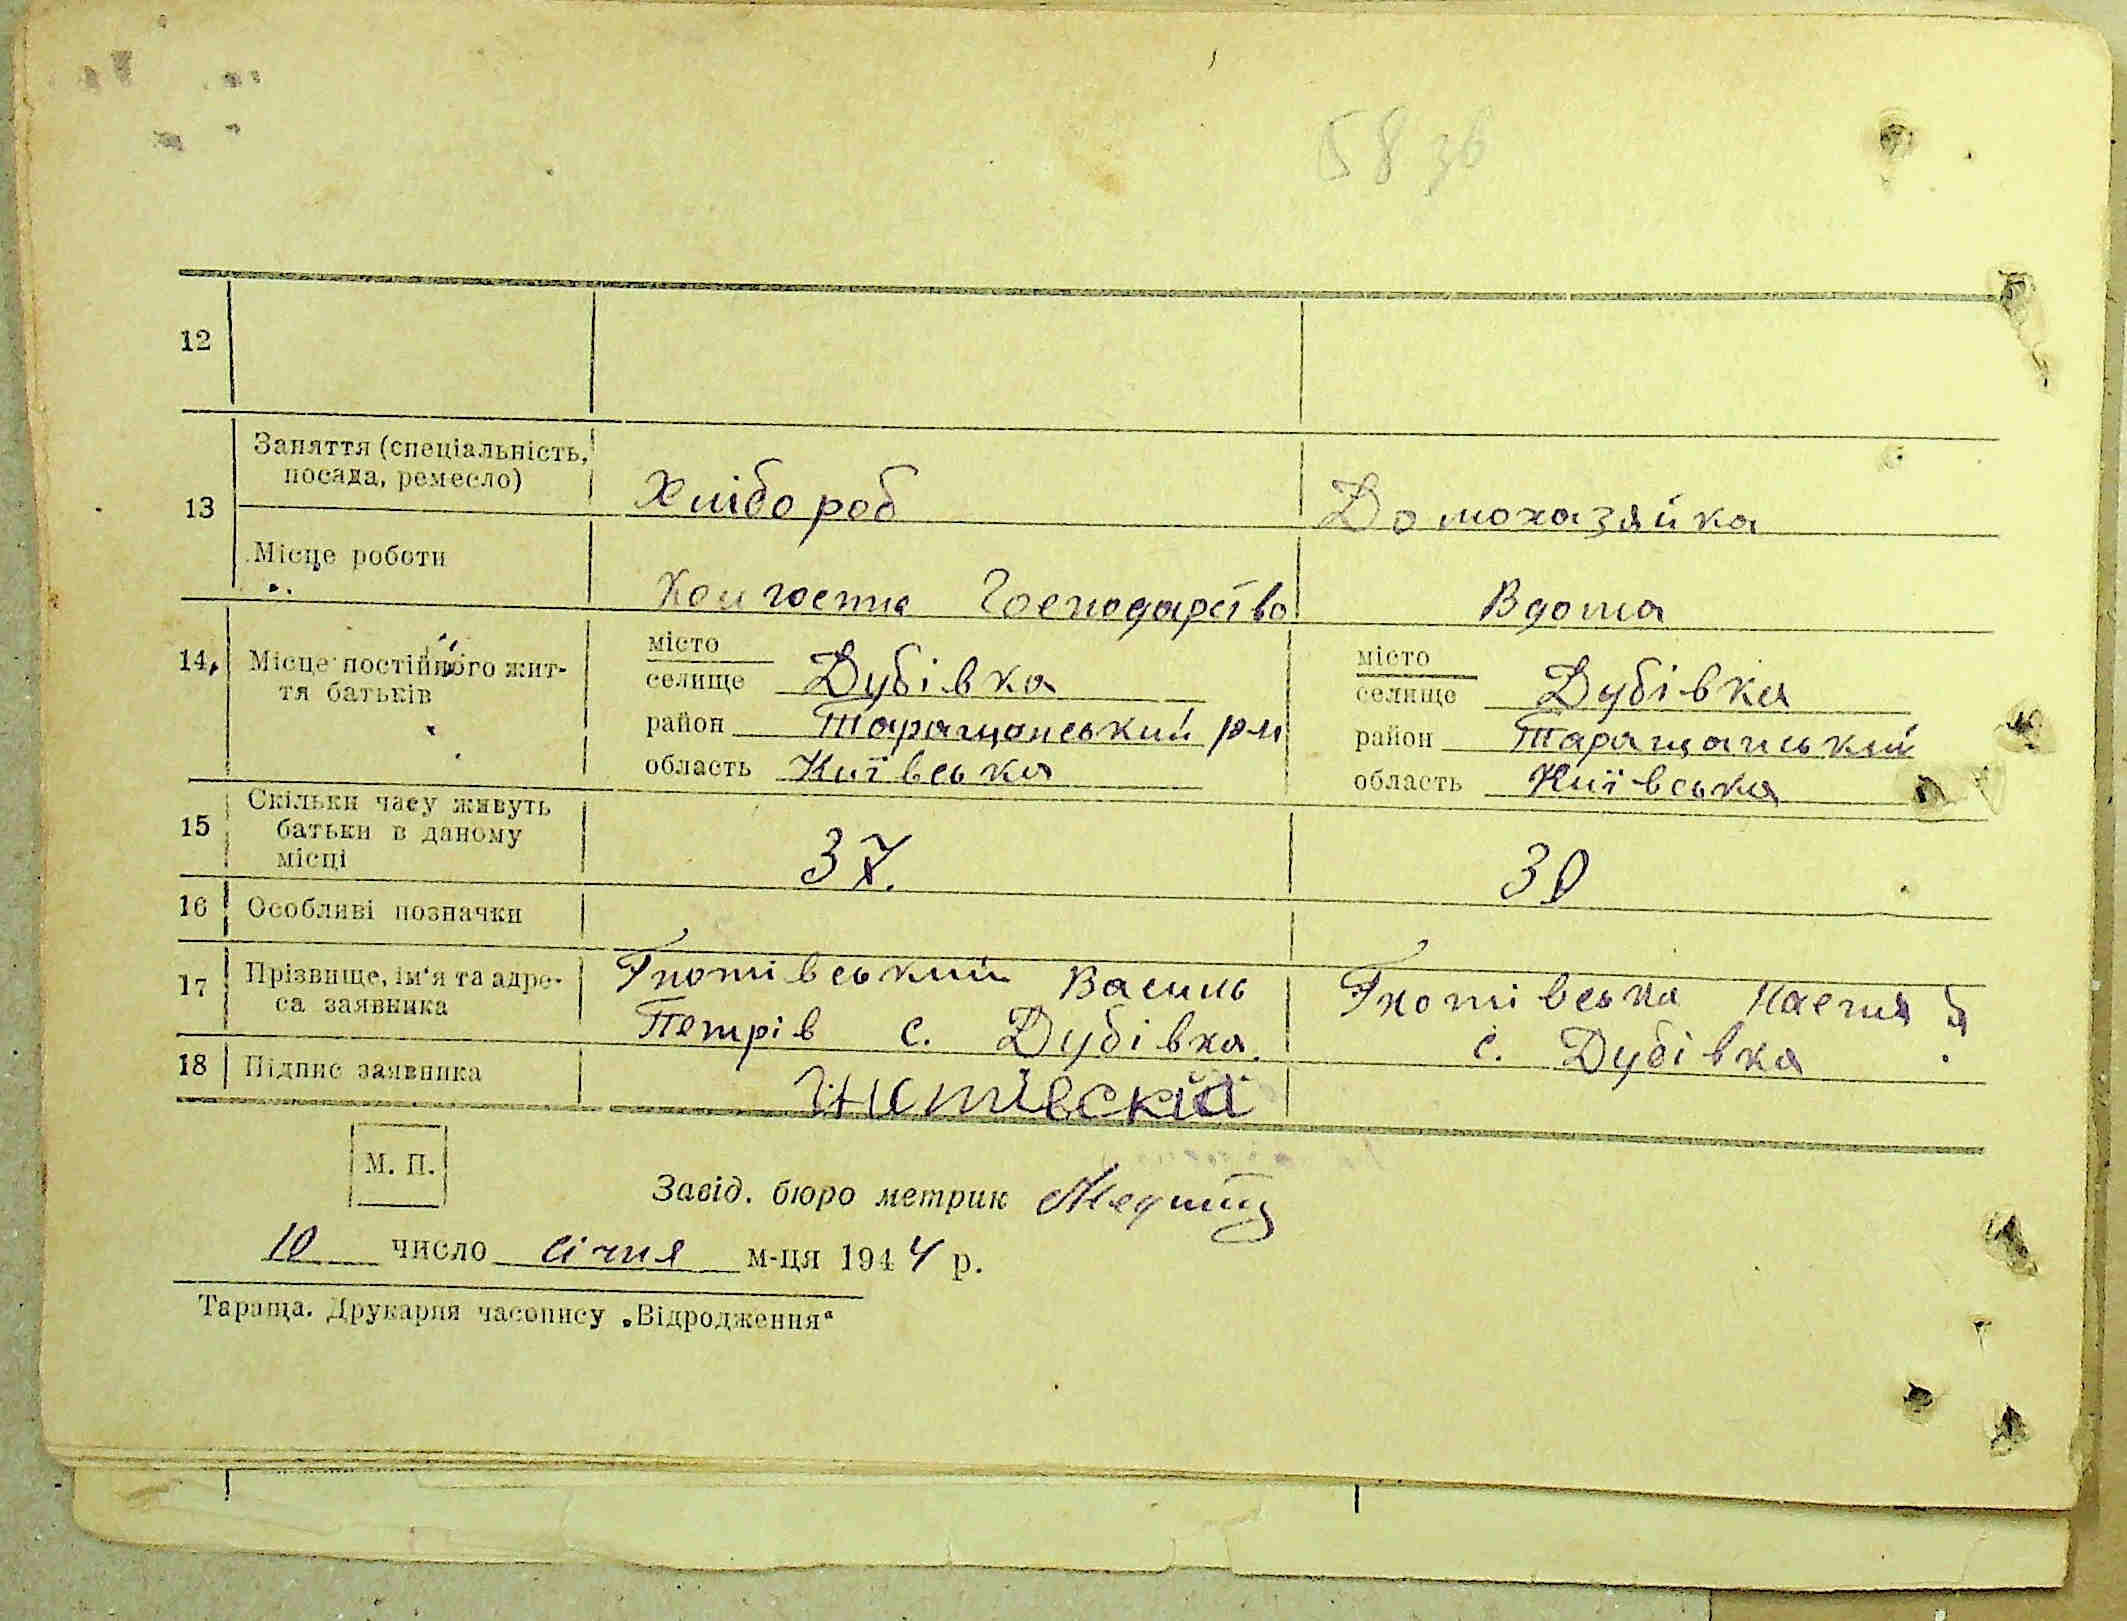 58 зв
12
13
Заняття (спеціальність,
посада, ремесло)
Хлібороб
Домохазяйка
Місце роботи
Господарство
Вдома
14
Місце постійного жит-
тя батьків
місто
селище Дубівка
район Таращанський р-н
область Київська
місто
селище Дубівка
район Таращанський
область Київська
15
Скільки часу живуть
батьки в даному
місці
37.
30
16
Особливі позначки
17
Прізвище, ім'я та адре-
са заявника
Гнотівський Василь
Петрів с. Дубівка.
Гнотівська
с. Дубівка
18
Підпис заявника
М. П.
Завід. бюро метрик
10 число січня м-ця 1944 р.
Тараща. Друкарня часопису „Відродження“